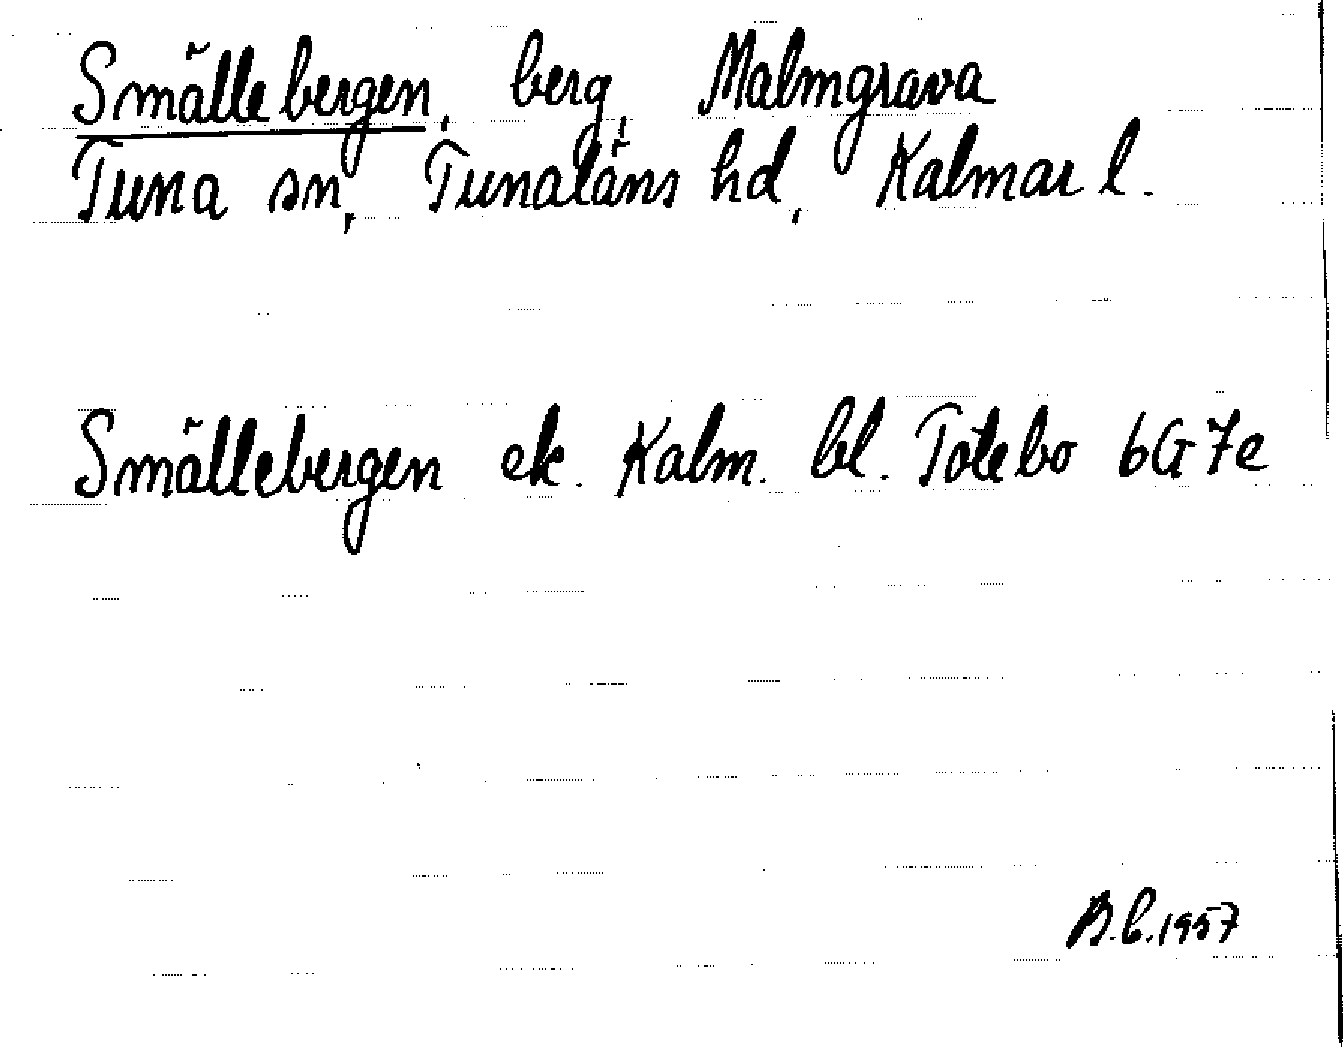 Smällebergen, berg, Malmgrava
Tuna sn, Tunaläns hd, Kalmar l.
Smällebergen ek. Kalm. bl. Totebo 6G7e
B.L.1957